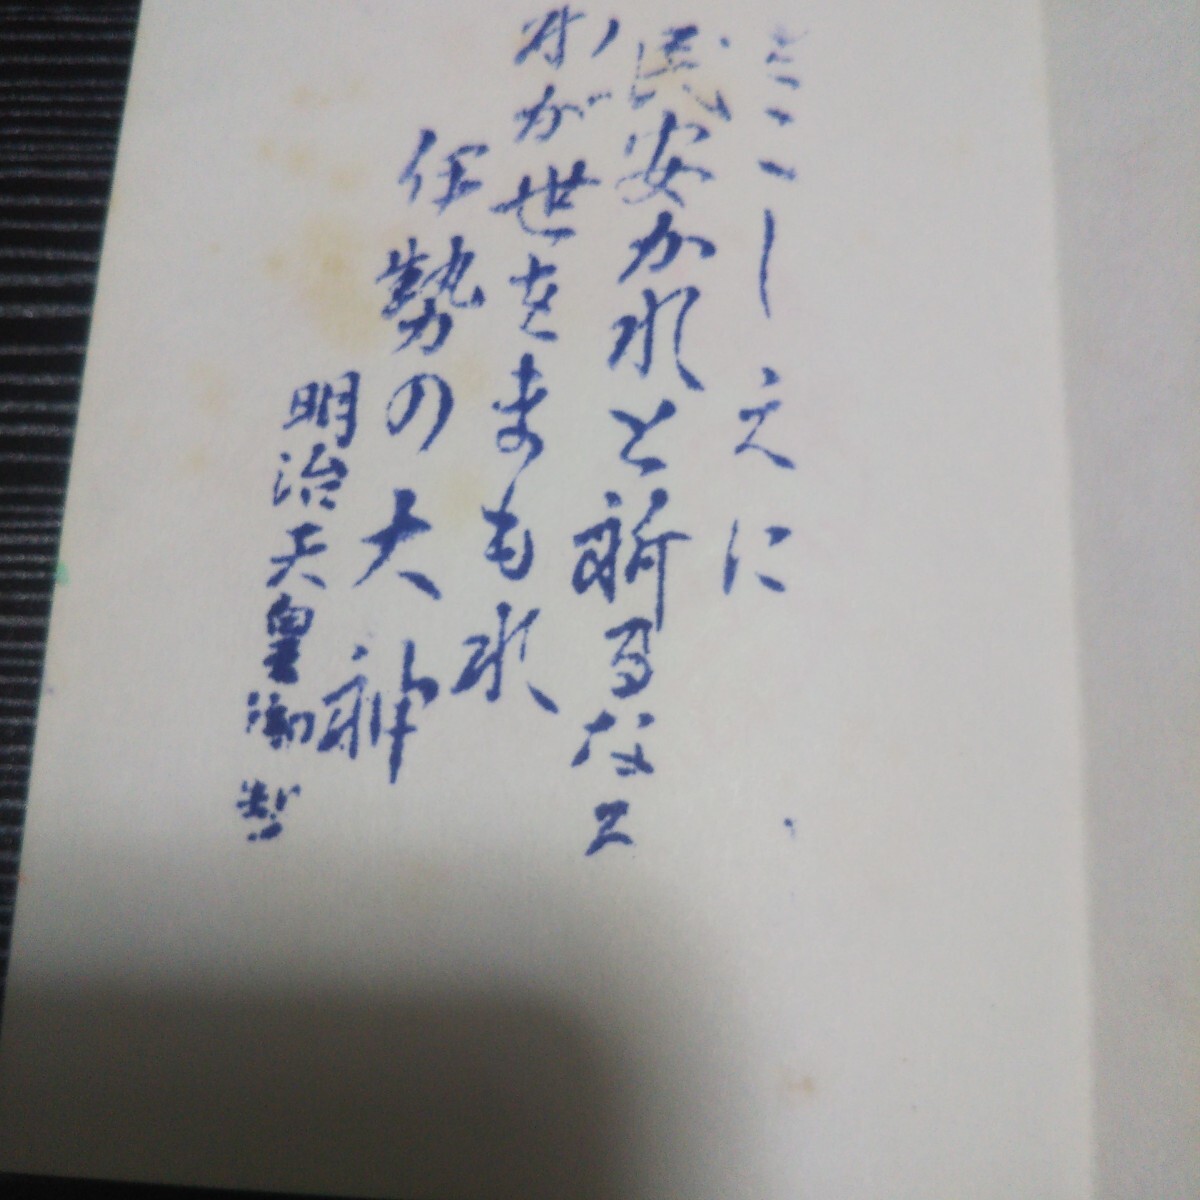 とこしえに
民安かれと祈るなる
わが世をまもれ
伊勢の大神
明治天皇御製